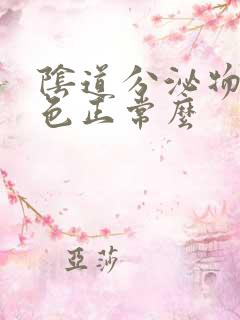 陰道分泌物
色正常麼
亞莎